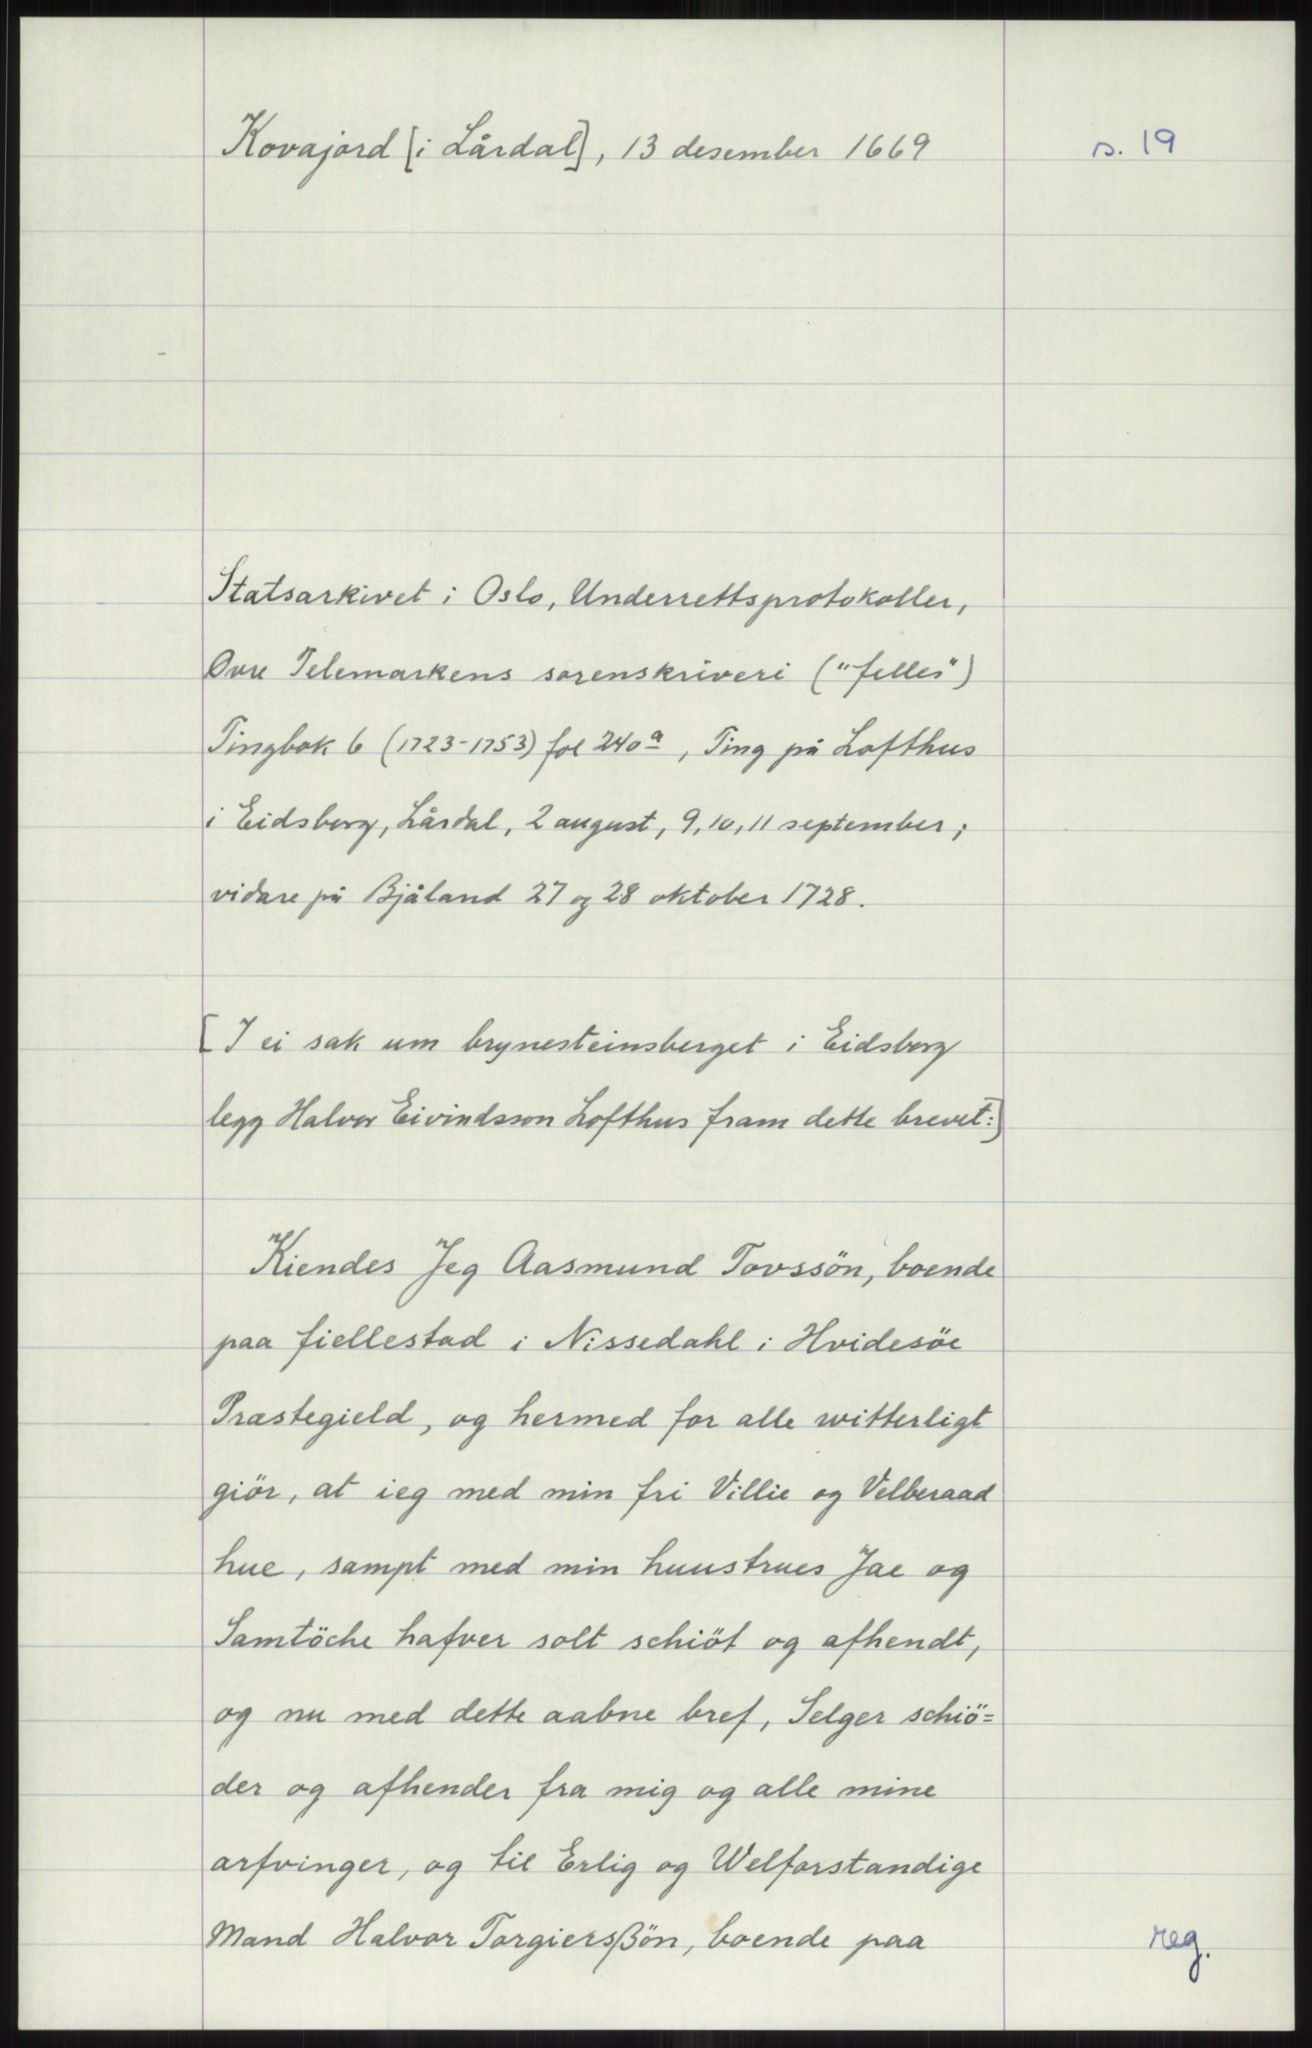 Kovajord [i Lårdal], 13 desember 1669
s. 19
Statsarkivet i Oslo, Underrettsprotokoller,
Øvre Telemarkens sorenskriveri ("felles")
Tingbok 6 (1723-1753) fol 240a, Ting på Lofthus
i Eidsborg, Lårdal, 2 august, 9, 10, 11 september;
vidare på Bjåland 27 og 28 oktober 1728.
[I ei sak um brynesteinsberget i Eidsborg
legg Halvor Eivindsson Lofthus fram dette brevet:]
Kiendes Jeg Aasmund Tovssön, boende
paa fiellestad i Nissedahl i Hvidesöe
Præstegield, og hermed for alle witterligt
giör, at ieg med min fri Villie og Velberaad
hue, sampt med min huustrues Jae og
Samtöche hafver solt schiöt og afhendt,
og nu med dette aabne bref, Selger schiö=
der og afhender fra mig og alle mine
arfvinger, og til Erlig og Welforstandige
Mand Halvor Torgiersßön, boende paa
reg.